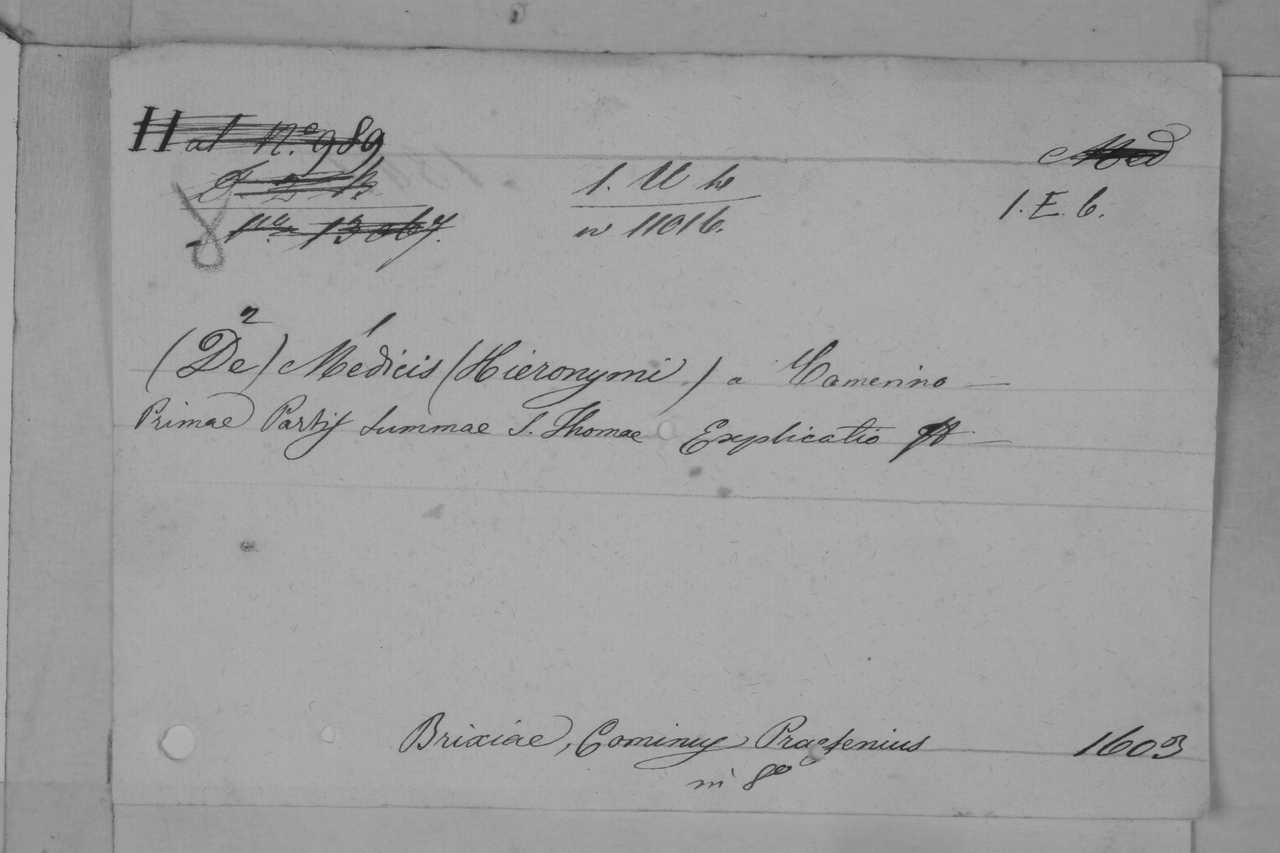 Hal N.o 989
1. U h
1. E. 6.
n 11016.
13067.
2 1
(De) Medicis (Hieronymi) a Camerino
Primae Partis Summae S. Thomae Explicatio
Brixiae, Cominus Praesenius 1603
in 8o